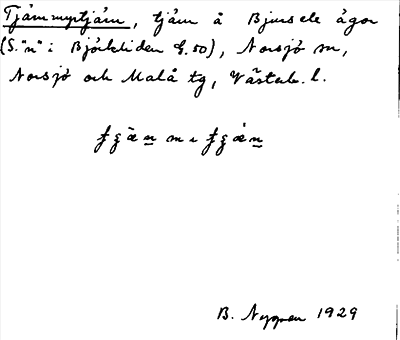 Tjärnmyrtjärn, tjärn å Bjursele ägor
(S. "n" i Björkliden f. 50), Norsjö sn,
Norsjö och Malå tg, Västerb. l.
B. Nyman 1929